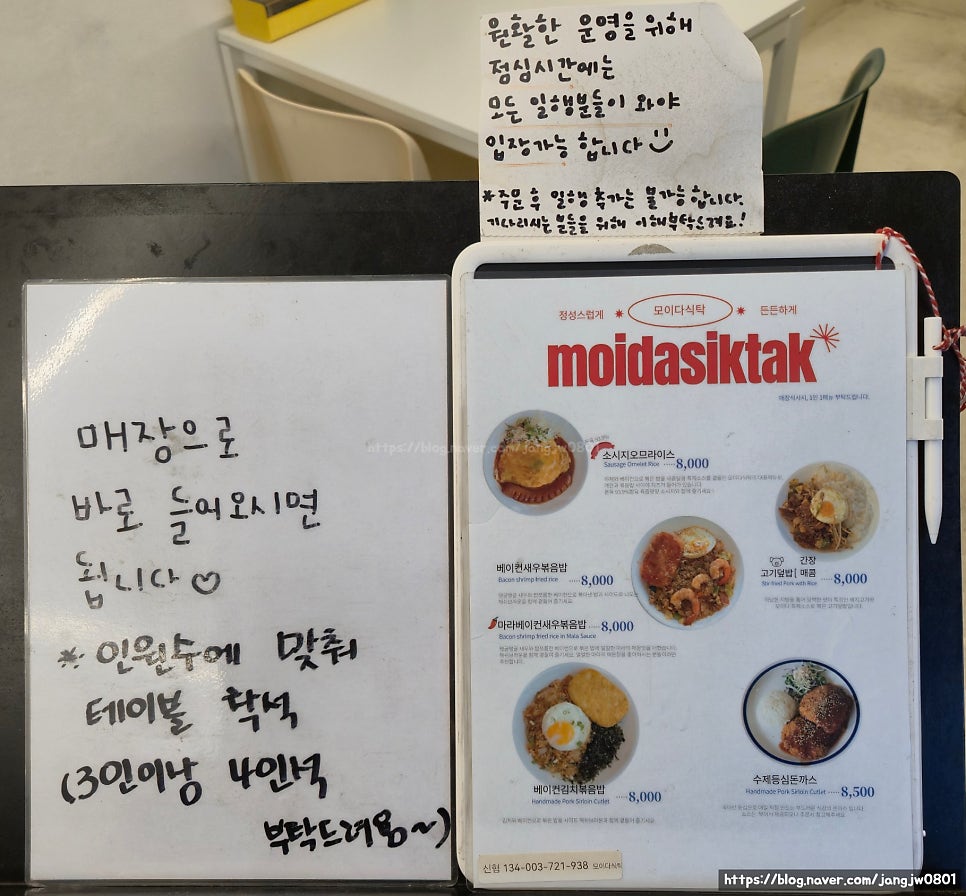 원활한 운영을 위해
점심시간에는
모든 일행분들이 와야
입장가능 합니다
*주문 후 일행 추가는 불가능합니다.
기다리시는 분들을 위해 이해부탁드려요!
매장으로
바로 들어오시면
됩니다♡
* 인원수에 맞춰
테이블 착석
(3인이상 4인석
부탁드려용~)
정성스럽게 모이다식탁 든든하게
moidasiktak
매장식사시, 1인 1메뉴 부탁드립니다.
소시지오므라이스
Sausage Omelet Rice 8,000
베이컨새우볶음밥
Bacon shrimp fried rice 8,000
간장
고기덮밥[ 매콤
Stir-fried Pork with Rice 8,000
마라베이컨새우볶음밥
Bacon shrimp fried rice in Mala Sauce 8,000
베이컨김치볶음밥
Handmade Pork Sirloin Cutlet 8,000
수제등심돈까스
Handmade Pork Sirloin Cutlet 8,500
신협 134-003-721-938 모이다식탁
https://blog.naver.com/jangjw0801
https://blog.naver.com/jangjw0801